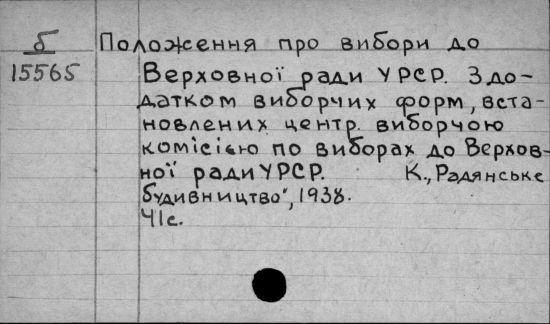 Б
15565
Положення про вибори до
Верховної ради УРСР. З до-
датком виборчих форм, вста-
новлених центр. виборчою
комісією по виборах до Верхов-
ної ради УРСР. К., Радянське
будивництво", 1938.
41с.